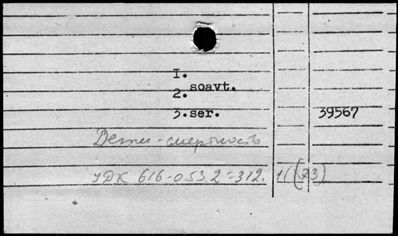 1.
soavt.
2.
3. ser. 39567
Дети - смертность
УДК 616-053.2-312. 1((73)